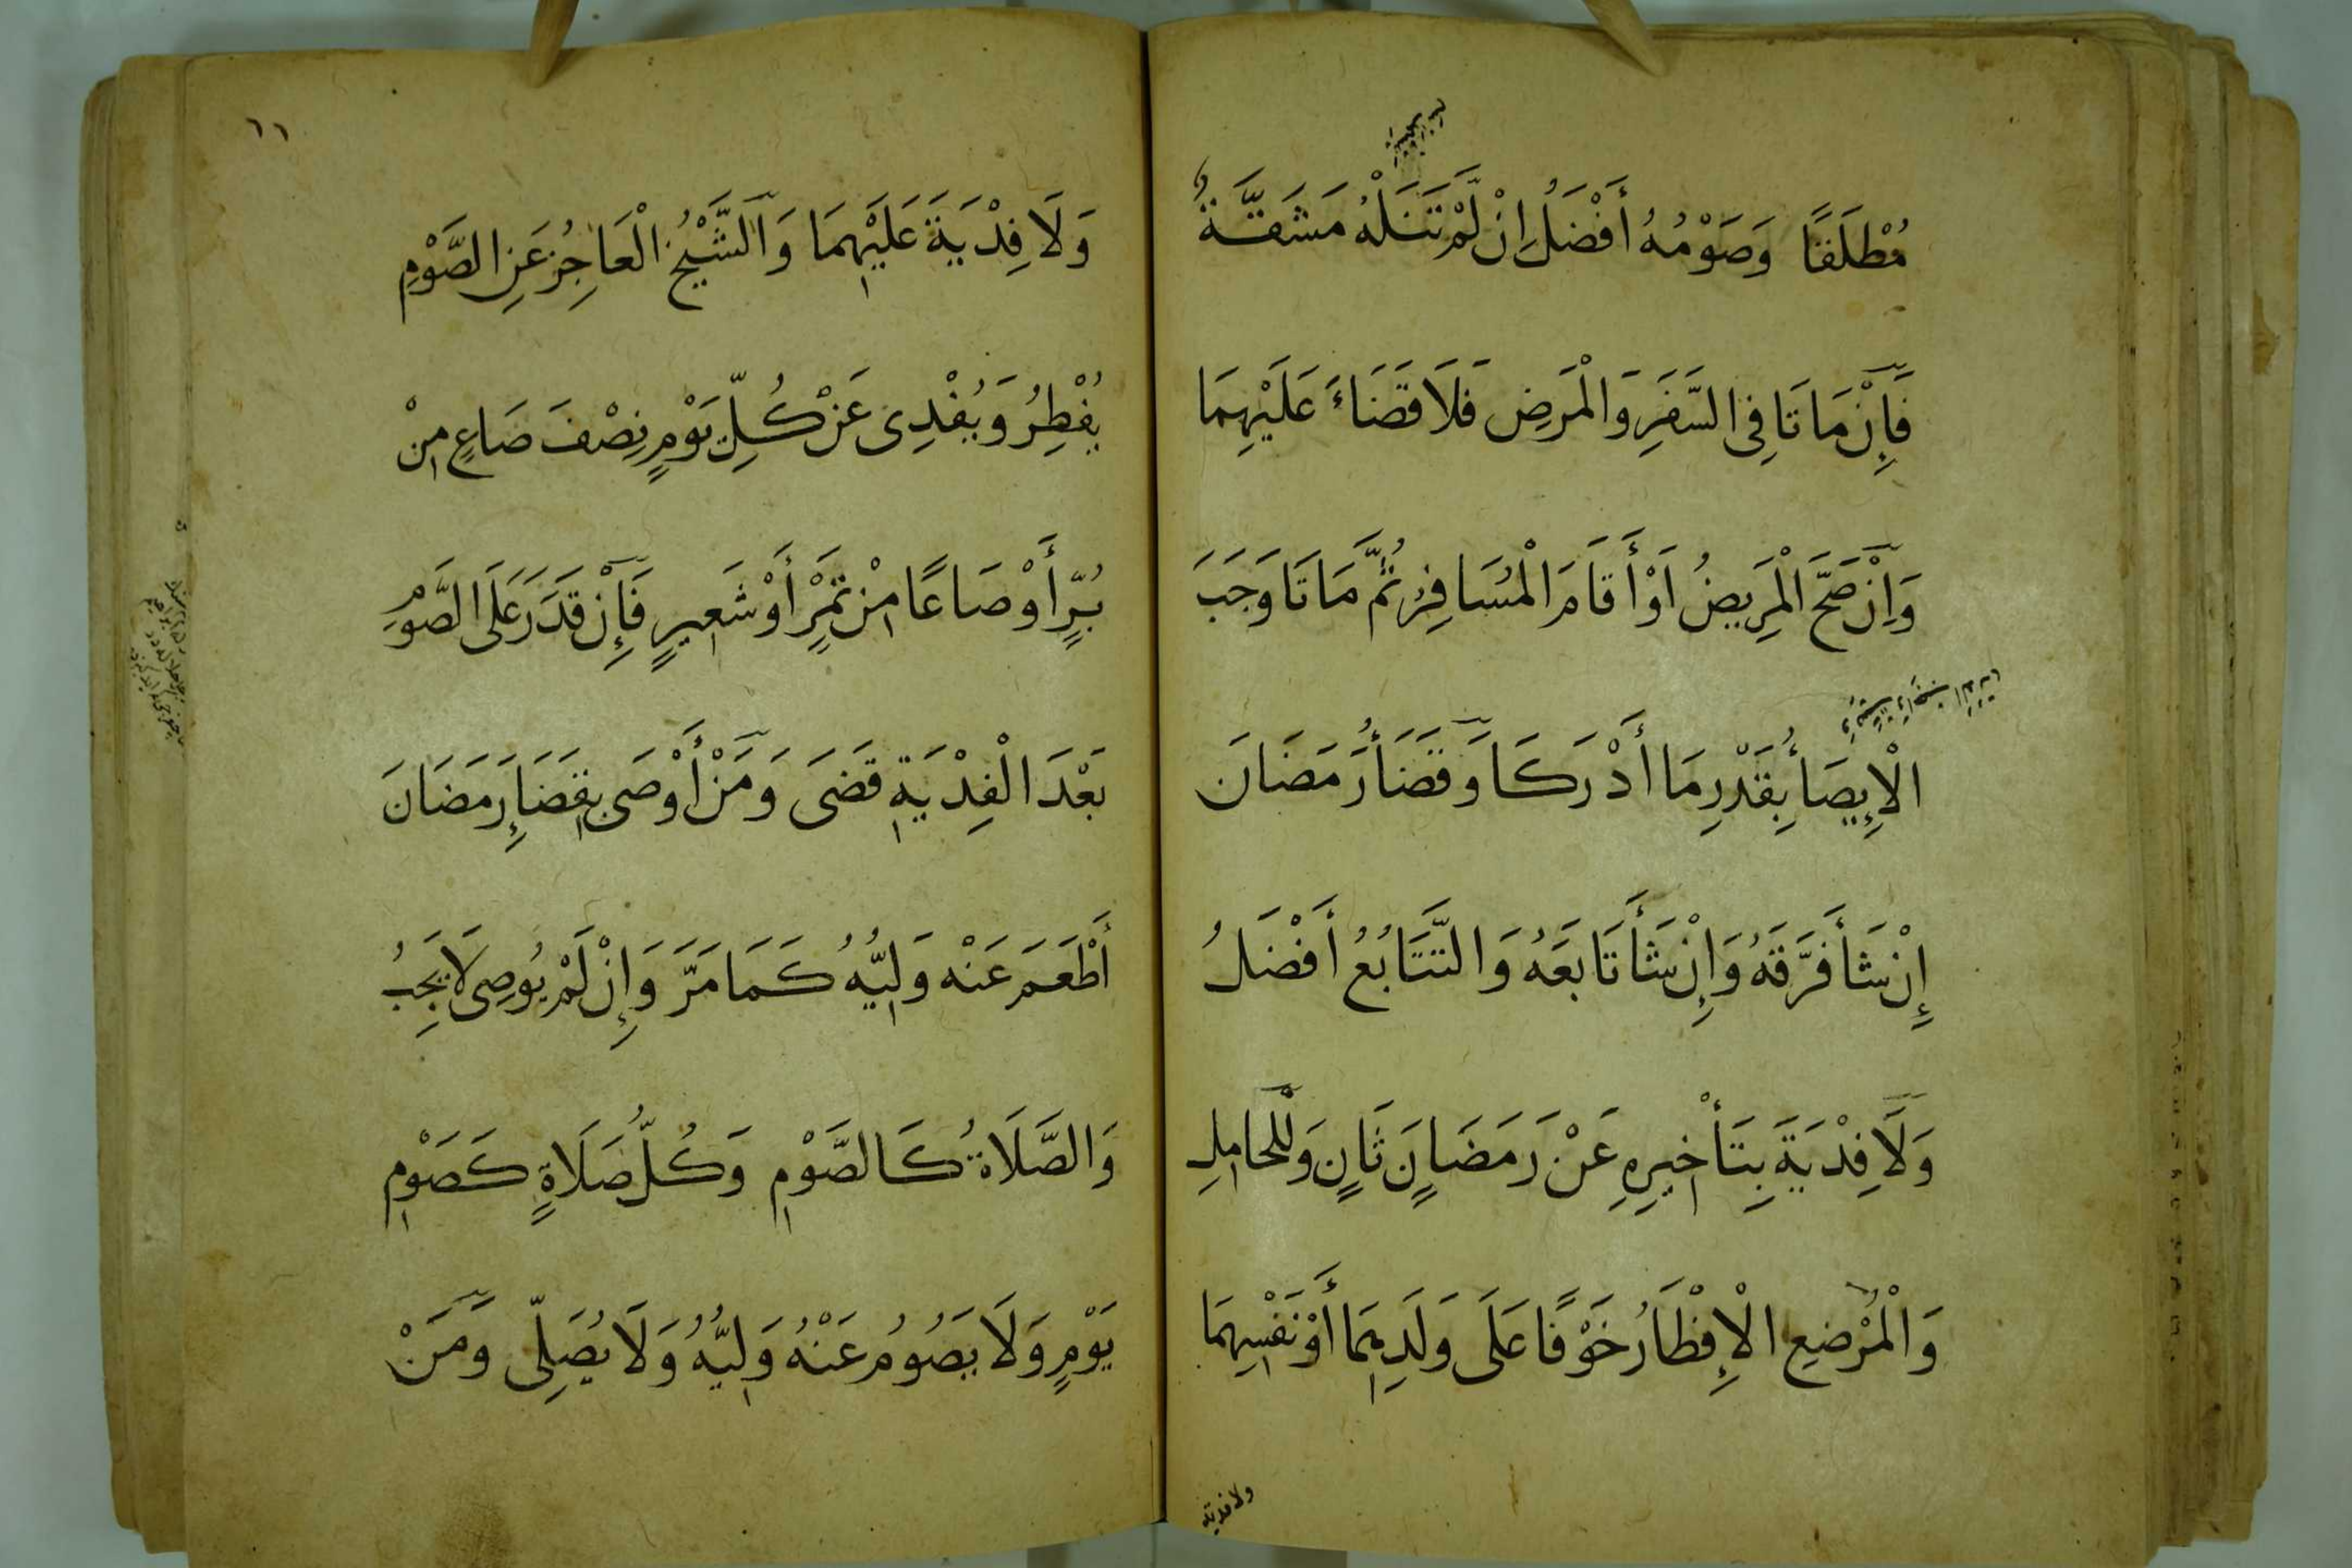 مُطْلَقًا وَصَوْمُهُ أَفْضَلُ اِنْ لَّمْ تَنَلْهُ مَشَقَّةٌ
فَاِنْ مَاتَا فِى السَّفَرِ وَالْمَرَضِ فَلَا قَضَاءَ عَلَيْهِمَا
وَاِنْ صَحَّ الْمَرِيضُ اَوْ أَقَامَ الْمُسَافِرُ ثُمَّ مَاتَا وَجَبَ
الْاِيصَأُ بِقَدْرِ مَا أَدْرَكَا وَقَضَأُ رَمَضَانَ
إِنْ شَأَ فَرَّقَهُ وَاِنْ شَأَ تَابَعَهُ وَالتَّتَابُعُ أَفْضَلُ
وَلَا فِدْيَةَ بِتَأْخِيرِهِ عَنْ رَمَضَانٍ ثَانٍ وَلِلْحَامِلِ
وَالْمُرْضِعِ الْاِفْطَارُ خَوْفًا عَلَى وَلَدِهِمَا أَوْ نَفْسِهِمَا
ولا فدية
١١
وَلَا فِدْيَةَ عَلَيْهِمَا وَالشَّيْخُ الْعَاجِزُ عَنِ الصَّوْمِ
يُفْطِرُ وَيُفْدِى عَنْ كُلِّ يَوْمٍ نِصْفَ صَاعٍ مِنْ
بُرٍّ أَوْ صَاعًا مِنْ تَمْرٍ أَوْ شَعِيرٍ فَاِنْ قَدَرَ عَلَى الصَّوْمِ
بَعْدَ الْفِدْيَةِ قَضَى وَمَنْ أَوْصَى بِقَضَاِ رَمَضَانَ
أَطْعَمَ عَنْه وَلِيُّهُ كَمَا مَرَّ وَاِنْ لَمْ يُوصِى لَا يَجِبُ
وَالصَّلَاةُ كَالصَّوْمِ وَكُلُّ صَلَاةٍ كَصَوْمِ
يَوْمٍ وَلَا يَصُومُ عَنْهُ وَلِيُّهُ وَلَا يُصَلِّى وَمَنْ